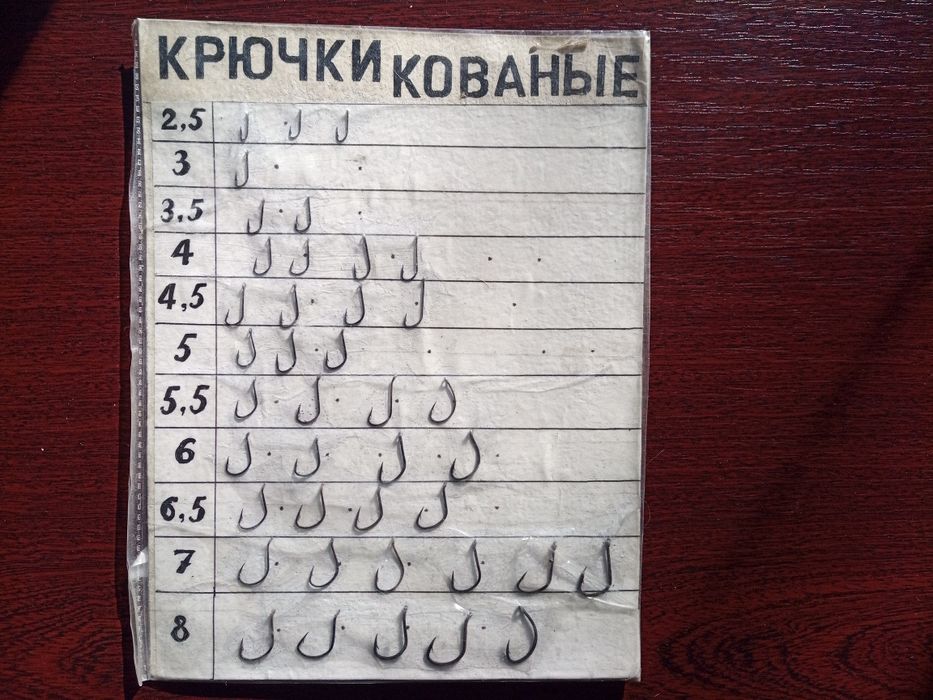 КРЮЧКИ КОВАНЫЕ
2,5
3
3,5
4
4,5
5
5,5
6
6,5
7
8